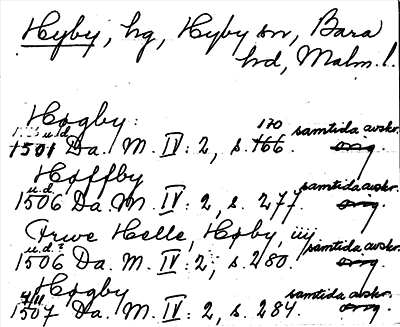 Hyby, hg, Hyby sn, Bara
hd, Malm. l.
Høgby:
u.d. 170 samtida avskr.
1501 Da. M. IV: 2, s. 166. orig.
Høffby
u.d. samtida avskr.
1506 Da. M. IV: 2, s. 277. orig.
Frwe Helle, Høby, iiij
u.d.? samtida avskr.
1506 Da. M. IV: 2, s. 280. orig.
Høgby samtida avskr.
1507 Da. M. IV: 2, s. 284. orig.